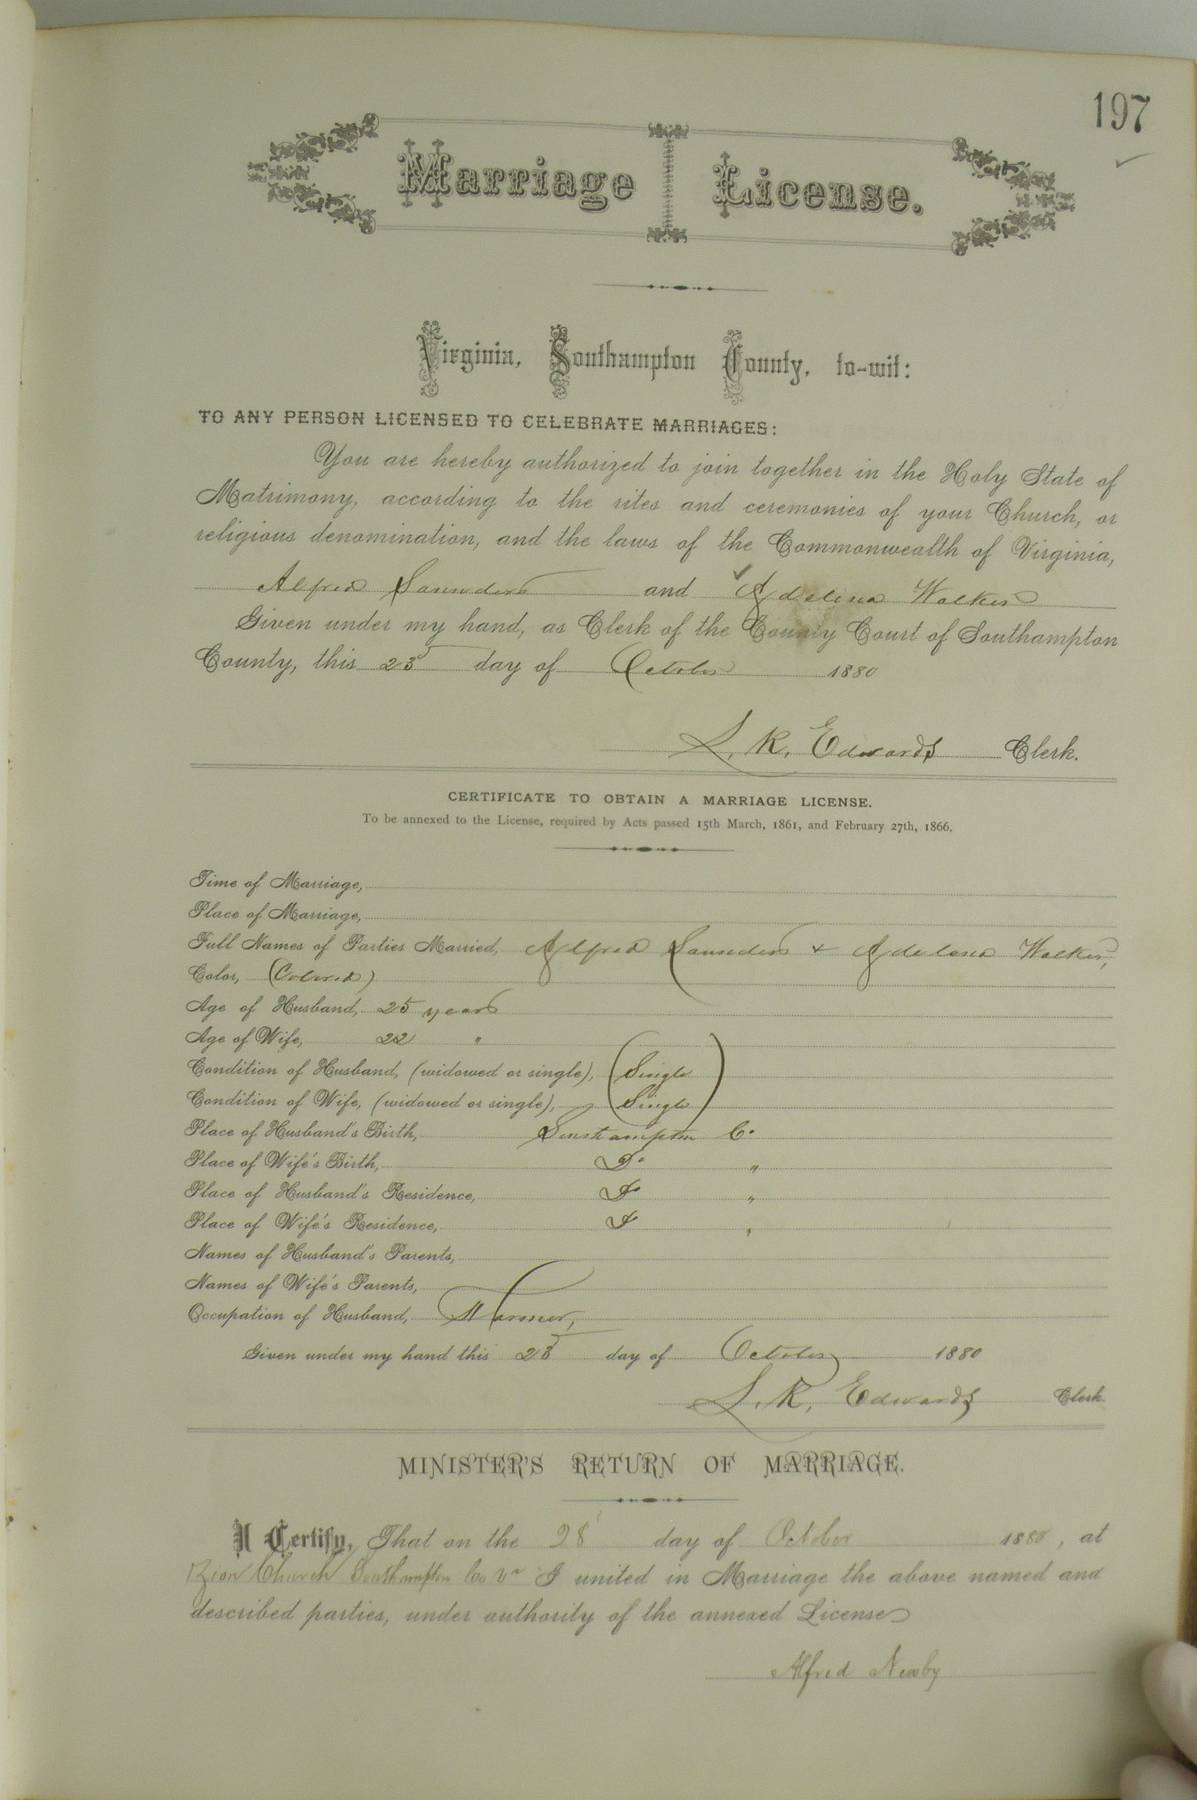 197
Marriage License.
Virginia, Southampton County, to-wit:
TO ANY PERSON LICENSED TO CELEBRATE MARRIAGES:
You are hereby authorized to join together in the Holy State of
Matrimony, according to the rites and ceremonies of your Church, or
religious denomination, and the laws of the Commonwealth of Virginia,
Alfred Saunders and Adelena Walker
Given under my hand, as Clerk of the County Court of Southampton
County, this 23 day of October 1880
L. R. Edwards Clerk.
CERTIFICATE TO OBTAIN A MARRIAGE LICENSE.
To be annexed to the License, required by Acts passed 15th March, 1861, and February 27th, 1866.
Time of Marriage,
Place of Marriage,
Full Names of Parties Married, Alfred Saunders + Adelena Walker,
Color, (Colored)
Age of Husband, 25 years
Age of Wife, 22 "
Condition of Husband, (widowed or single), Single
Condition of Wife, (widowed or single), Single
Place of Husband's Birth, Southampton Co
Place of Wife's Birth, Do "
Place of Husband's Residence, Do "
Place of Wife's Residence, Do "
Names of Husband's Parents,
Names of Wife's Parents,
Occupation of Husband, Farmer,
Given under my hand this 23 day of October 1880
L. R. Edwards Clerk
MINISTER'S RETURN OF MARRIAGE.
I Certify, That on the 28 day of October 1880, at
Zion Church Southampton Co Va I united in Marriage the above named and
described parties, under authority of the annexed License
Alfred Newby